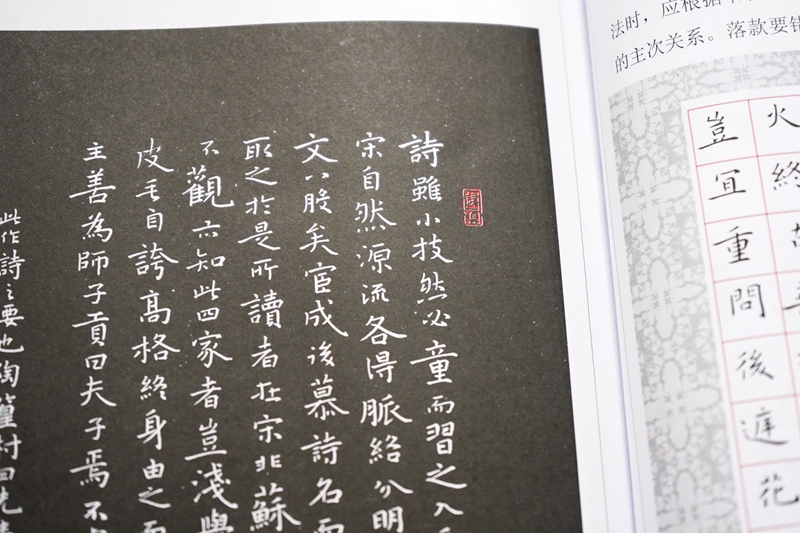 詩雖小技然必童而習之入
宋自然源流各得脈絡分明
文八股矣宦成後慕詩名而
取之於是所讀者在宋非蘇
不觀亦知此四家者豈淺學
皮毛自誇高格終身由之而
主善為師子貢曰夫子焉不
此作詩之要也陶篁村曰先
法时，应根据
的主次关系。落款要错
火終
豈宜重問後遲花